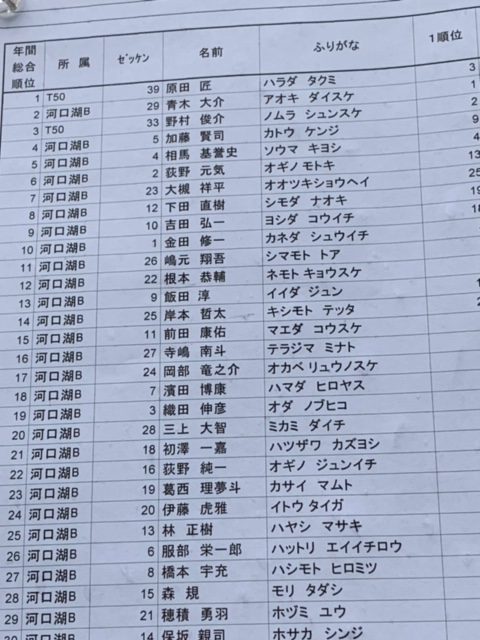 年間総合順位 所属 ゼッケン 名前 ふりがな 1順位
1 T50 39 原田 匠 ハラダ タクミ 3
2 河口湖B 29 青木 大介 アオキ ダイスケ 1
3 T50 33 野村 俊介 ノムラ シュンスケ 2
4 河口湖B 5 加藤 賢司 カトウ ケンジ 9
5 河口湖B 4 相馬 基誉史 ソウマ キヨシ 4
6 河口湖B 2 荻野 元気 オギノ モトキ 13
7 河口湖B 23 大槻 祥平 オオツキショウヘイ 25
8 河口湖B 12 下田 直樹 シモダ ナオキ 19
9 河口湖B 10 吉田 弘一 ヨシダ コウイチ 18
10 河口湖B 1 金田 修一 カネダ シュウイチ
11 河口湖B 26 嶋元 翔吾 シマモト トア
12 河口湖B 22 根本 恭輔 ネモト キョウスケ
13 河口湖B 9 飯田 淳 イイダ ジュン
14 河口湖B 25 岸本 哲太 キシモト テッタ
15 河口湖B 11 前田 康佑 マエダ コウスケ
16 河口湖B 27 寺嶋 南斗 テラジマ ミナト
17 河口湖B 24 岡部 竜之介 オカベ リュウノスケ
18 河口湖B 7 濱田 博康 ハマダ ヒロヤス
19 河口湖B 3 織田 伸彦 オダ ノブヒコ
20 河口湖B 28 三上 大智 ミカミ ダイチ
21 河口湖B 18 初澤 一嘉 ハツザワ カズヨシ
22 河口湖B 16 荻野 純一 オギノ ジュンイチ
23 河口湖B 19 葛西 理夢斗 カサイ マムト
24 河口湖B 20 伊藤 虎雅 イトウ タイガ
25 河口湖B 13 林 正樹 ハヤシ マサキ
26 河口湖B 6 服部 栄一郎 ハットリ エイイチロウ
27 河口湖B 8 橋本 宇充 ハシモト ヒロミツ
28 河口湖B 15 森 規 モリ タダシ
29 河口湖B 21 穂積 勇羽 ホヅミ ユウ
14 保坂 親司 ホサカ シンジ